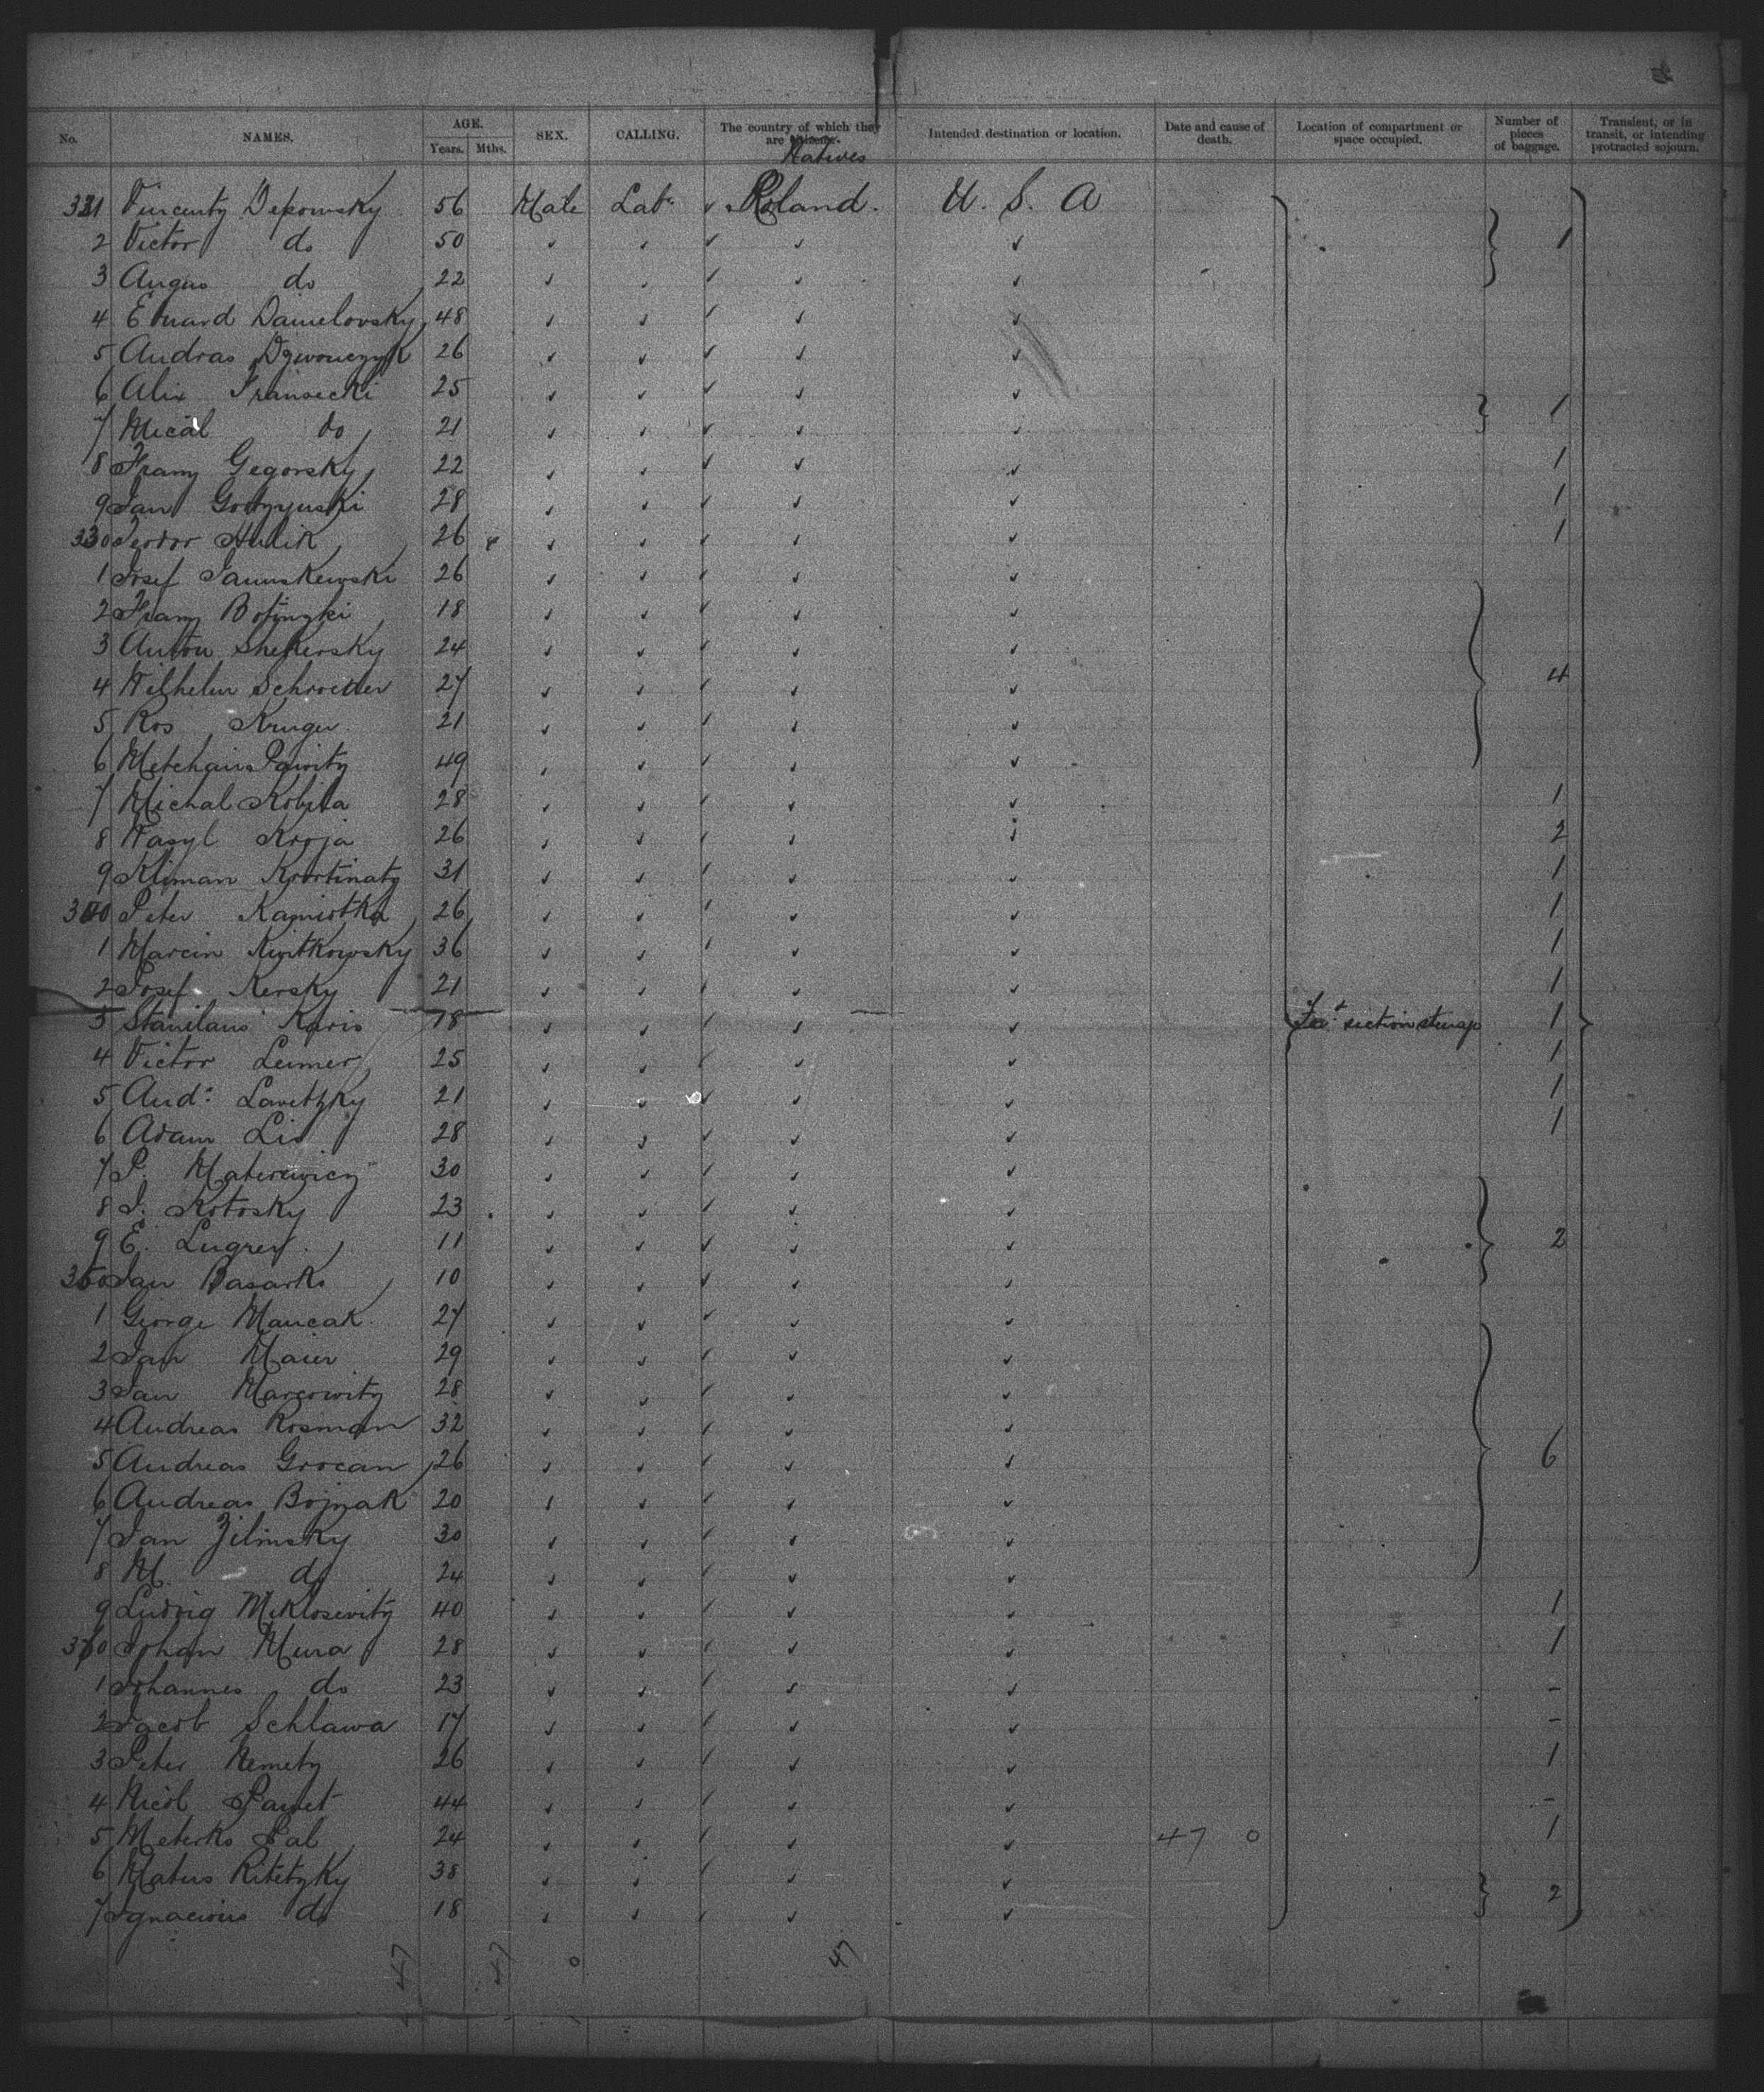 No. NAMES. AGE. Years. Mths. SEX. CALLING. The country of which they are citizens. Natives Intended destination or location. Date and cause of death. Location of compartment or space occupied. Number of pieces of baggage. Transient, or in transit, or intending protracted sojourn.
321 Vincenty Depowsky 56 Male Labr ✓ Poland. U. S. A
2 Victor do 50 ✓ ✓ ✓ ✓ ✓ 1
3 Angus do 22 ✓ ✓ ✓ ✓ ✓
4 Eduard Danielovsky 48 ✓ ✓ ✓ ✓ ✓
5 Andras Dzwonczyk 26 ✓ ✓ ✓ ✓ ✓
6 Alix Fransecki 25 ✓ ✓ ✓ ✓ ✓
7 Mical do 21 ✓ ✓ ✓ ✓ ✓ 1
8 Franz Gegorsky 22 ✓ ✓ ✓ ✓ ✓ 1
9 Jan 28 ✓ ✓ ✓ ✓ ✓ 1
330 Teodor Hulik 26 ✓ ✓ ✓ ✓ ✓ 1
1 Josef 26 ✓ ✓ ✓ ✓ ✓
2 Franz 18 ✓ ✓ ✓ ✓ ✓
3 Anton 24 ✓ ✓ ✓ ✓ ✓
4 Wilhelm Schroeder 27 ✓ ✓ ✓ ✓ ✓ 4
5 Ros Kruger 21 ✓ ✓ ✓ ✓ ✓
6 49 ✓ ✓ ✓ ✓ ✓
7 Michal Kobila 28 ✓ ✓ ✓ ✓ ✓ 1
8 Wasyl Kroja 26 ✓ ✓ ✓ ✓ ✓ 2
9 Kliman 31 ✓ ✓ ✓ ✓ ✓ 1
340 Peter Kamiotka 26 ✓ ✓ ✓ ✓ ✓ 1
1 Marcin Kwitkowsky 36 ✓ ✓ ✓ ✓ ✓ 1
2 Josef Kersky 21 ✓ ✓ ✓ ✓ ✓ 1
3 Stanilaus Karis 18 ✓ ✓ ✓ ✓ ✓ section 1
4 Victor Leimer 25 ✓ ✓ ✓ ✓ ✓ 1
5 And: Lavetzky 21 ✓ ✓ ✓ ✓ ✓ 1
6 Adam Lis 28 ✓ ✓ ✓ ✓ ✓ 1
7 P. Materewicz 30 ✓ ✓ ✓ ✓ ✓
8 J. Kotosky 23 ✓ ✓ ✓ ✓ ✓
9 E. Lugrey 11 ✓ ✓ ✓ ✓ ✓ 2
350 Jan Basarks 10 ✓ ✓ ✓ ✓ ✓
1 George Mancak 27 ✓ ✓ ✓ ✓ ✓
2 Jan Maier 29 ✓ ✓ ✓ ✓ ✓
3 Jan Marcowitz 28 ✓ ✓ ✓ ✓ ✓
4 Andreas Rosman 32 ✓ ✓ ✓ ✓ ✓
5 Andreas Grocan 26 ✓ ✓ ✓ ✓ ✓ 6
6 Andreas Bojnak 20 ✓ ✓ ✓ ✓ ✓
7 Jan Zilinsky 30 ✓ ✓ ✓ ✓ ✓
8 M. do 24 ✓ ✓ ✓ ✓ ✓
9 Ludvig Miklosevitz 40 ✓ ✓ ✓ ✓ ✓ 1
360 Johan Mura 28 ✓ ✓ ✓ ✓ ✓ 1
1 Johannes do 23 ✓ ✓ ✓ ✓ ✓ -
2 Jacob Schlawa 17 ✓ ✓ ✓ ✓ ✓ -
3 Peter Nemetz 26 ✓ ✓ ✓ ✓ ✓ 1
4 Nicol 44 ✓ ✓ ✓ ✓ ✓ -
5 Meterko Pal 24 ✓ ✓ ✓ ✓ ✓ 47 0 1
6 Matus Ritetzky 38 ✓ ✓ ✓ ✓ ✓
7 Ignacious do 18 ✓ ✓ ✓ ✓ ✓ 2
47 47 0 47